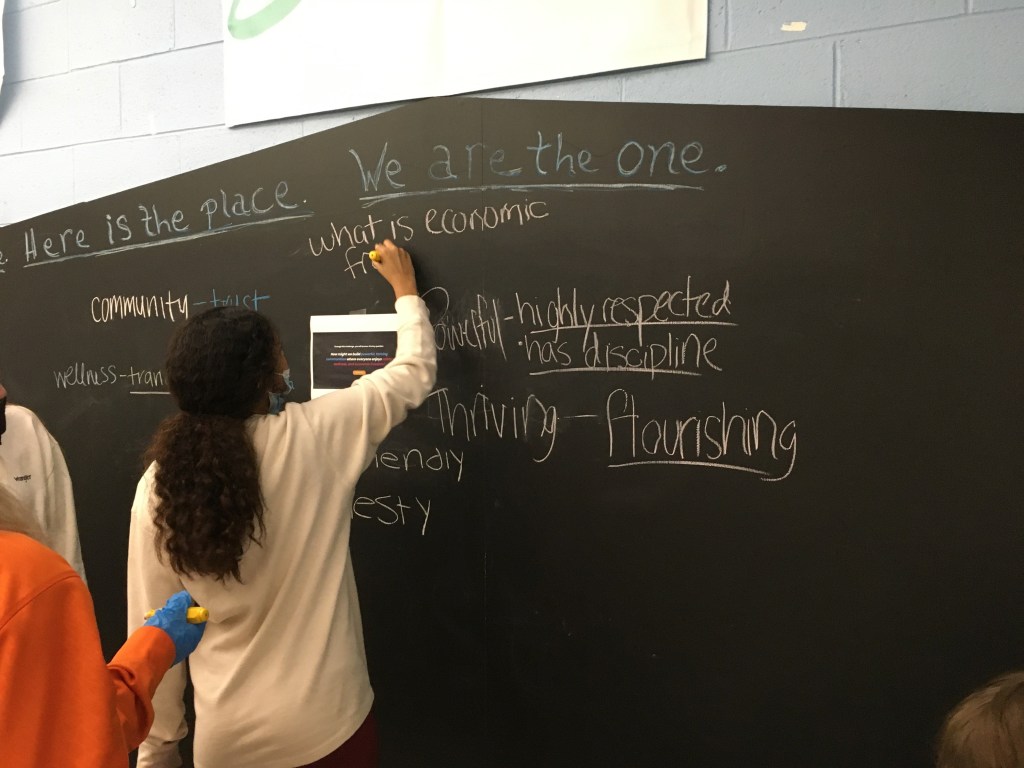 Here is the place.
We are the one.
what is economic
community - trust
Powerful - highly respected
· has discipline
wellness - tran
Thriving - flourishing
iendly
esty